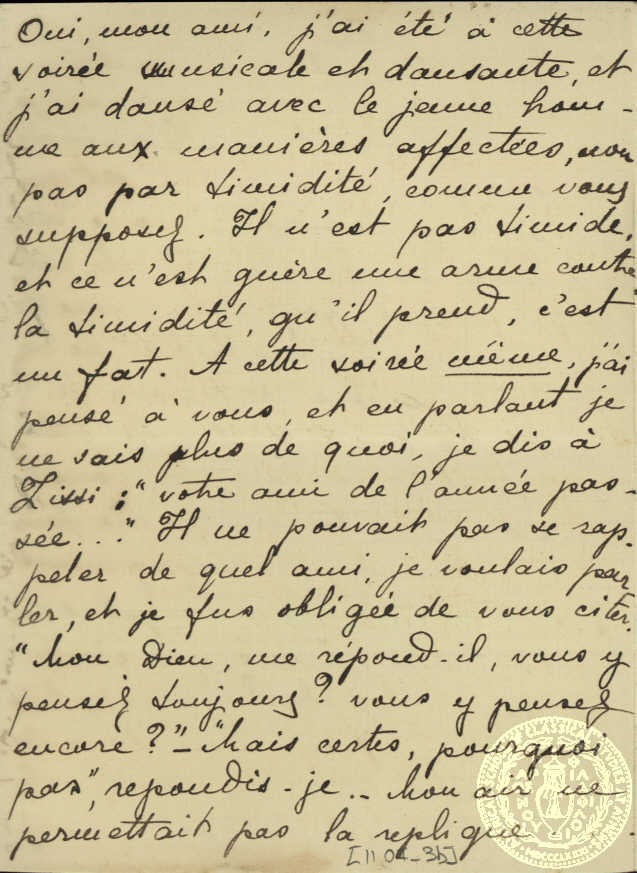 Oui, mon ami, j'ai été à cette
soirée musicale et dansante, et
j'ai dansé avec le jeune hom-
me aux manières affectées, non
pas par timidité, comme vous
supposez. Il n'est pas timide,
et ce n'est guère une arme contre
la timidité, qu'il prend, c'est
un fat. A cette soirée même, j'ai
pensé à vous, et en parlant je
ne sais plus de quoi, je dis à
Zissi : "votre ami de l'année pas-
sée..." Il ne pouvait pas se rap-
peler de quel ami, je voulais par
ler, et je fus obligée de vous citer.
"Mon Dieu, me répond-il, vous y
pensez toujours? vous y pensez
encore?" – "Mais certes, pourquoi
pas", repondis-je.. Mon air ne
permettait pas la replique...
[11 04-3b]